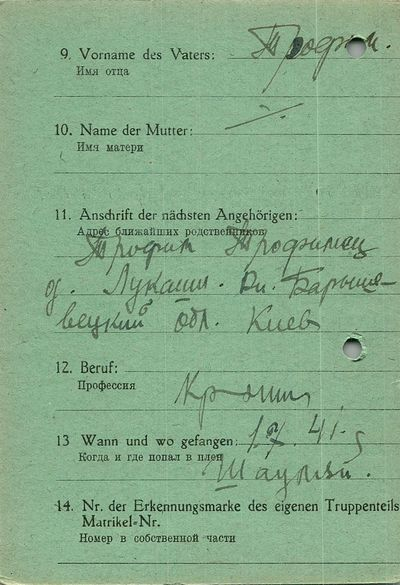 9. Vorname des Vaters: Трофим.
Имя отца
10. Name der Mutter:
Имя матери
11. Anschrift der nächsten Angehörigen:
Адрес ближайших родственников
Трофим
д. Лукаши. Барыше-
вецкий обл. Киев
12. Beruf:
Профессия
13 Wann und wo gefangen: 41.
Когда и где попал в плен
14. Nr. der Erkennungsmarke des eigenen Truppenteils
Matrikel-Nr.
Номер в собственной части